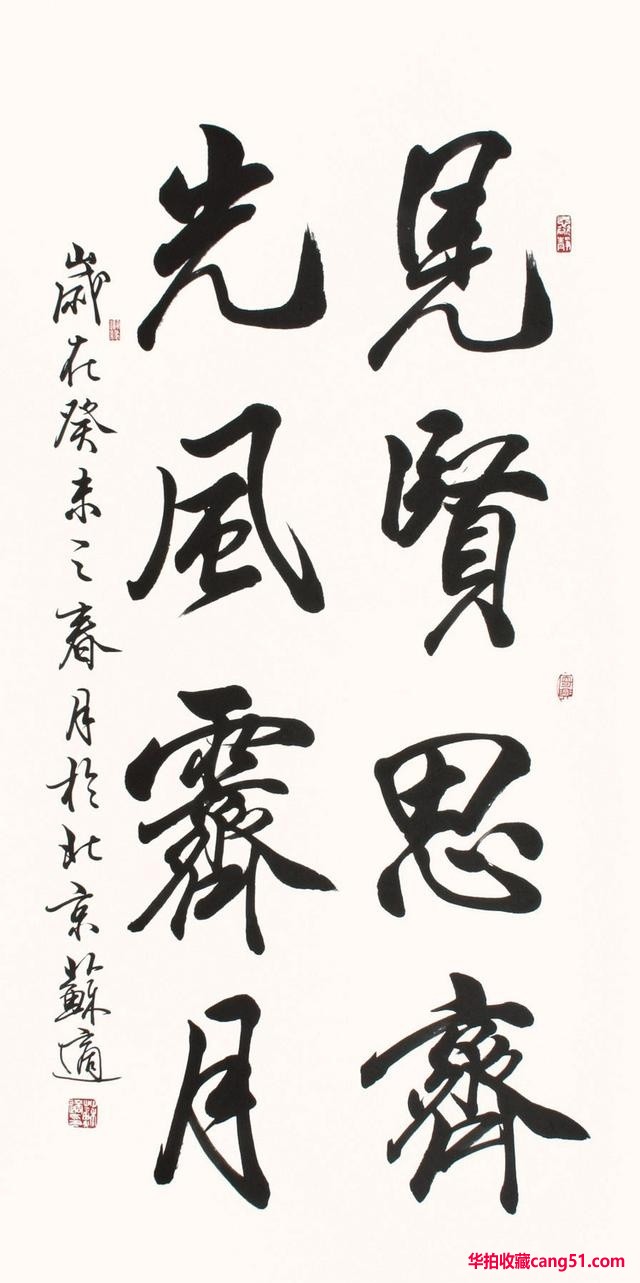 見賢思齊
光風霽月
歲在癸未之春月於北京蘇適
华拍收藏cang51.com